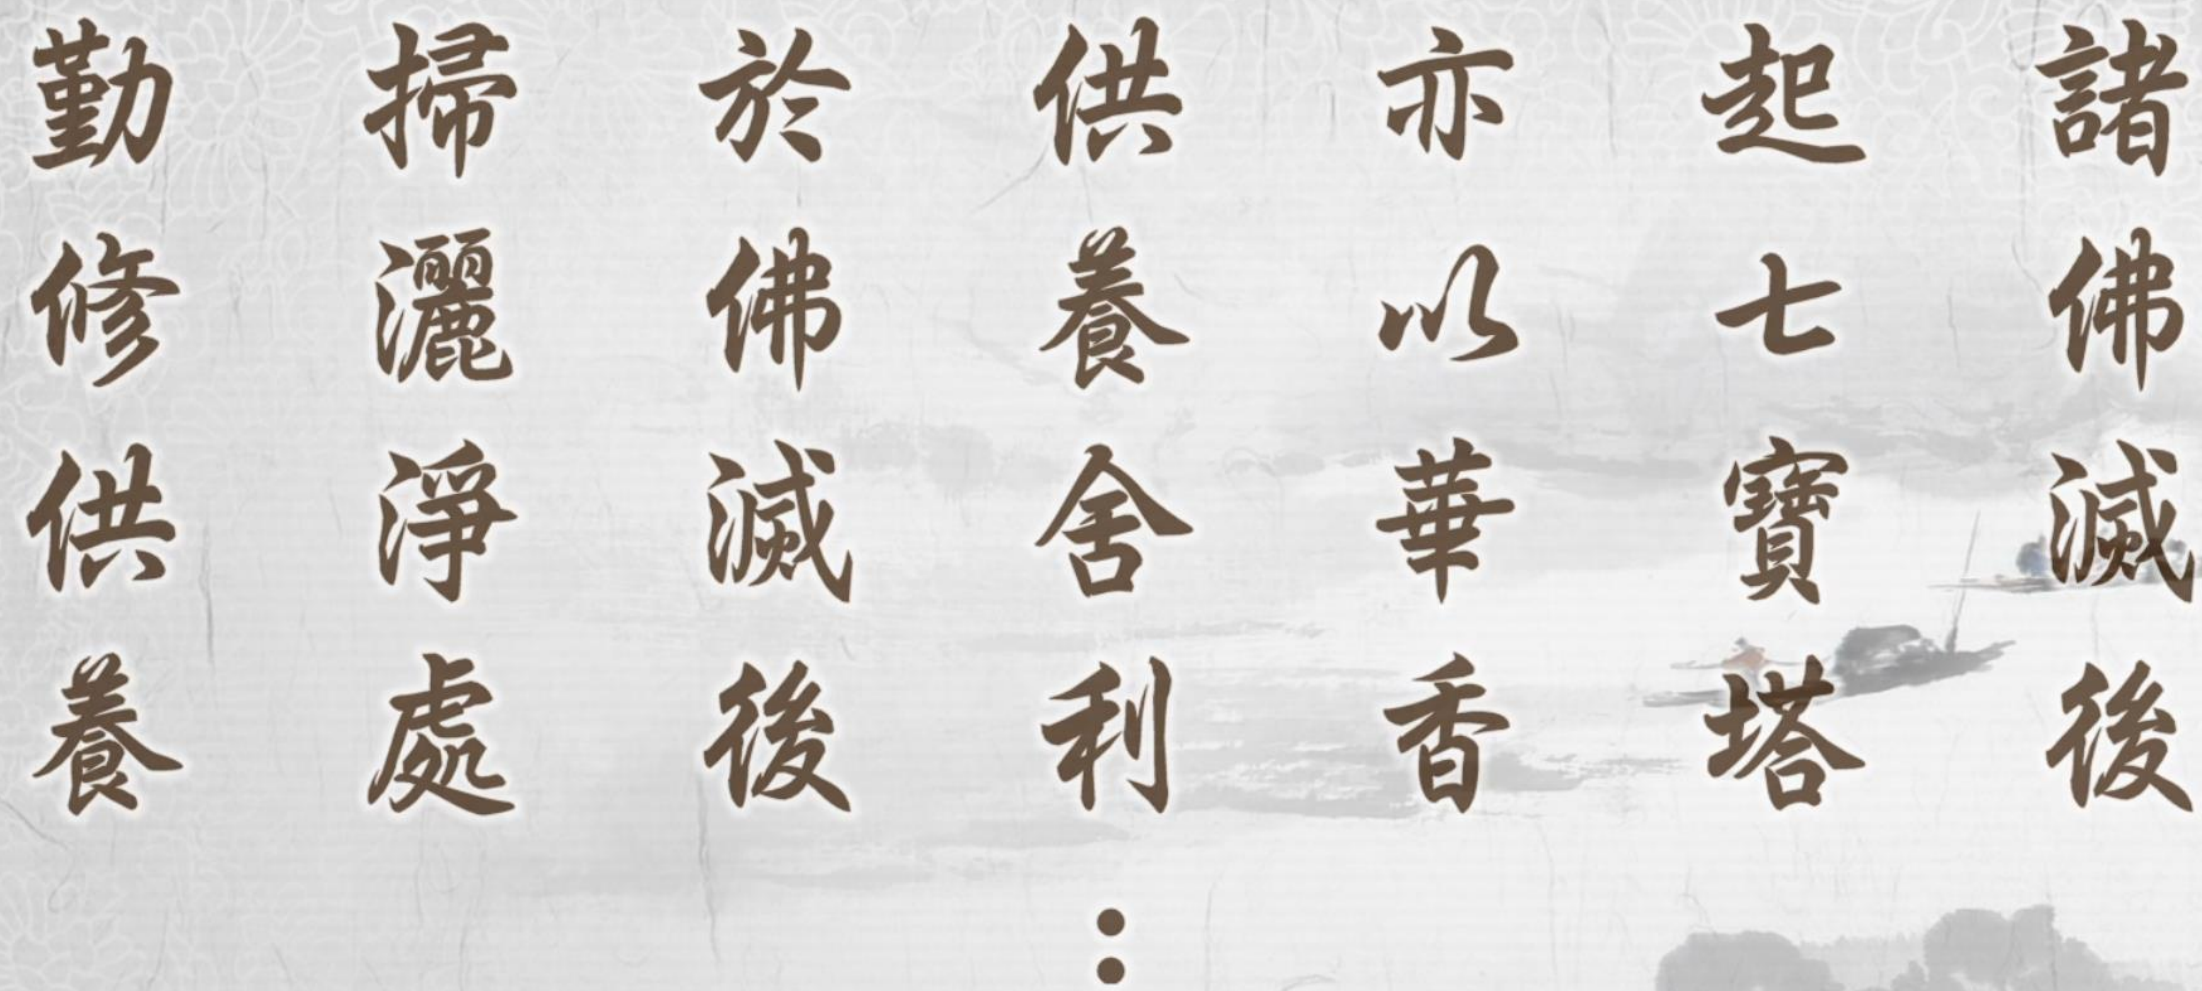 諸佛滅後
起七寶塔
亦以華香
供養舍利：
於佛滅後
掃灑淨處
勤修供養